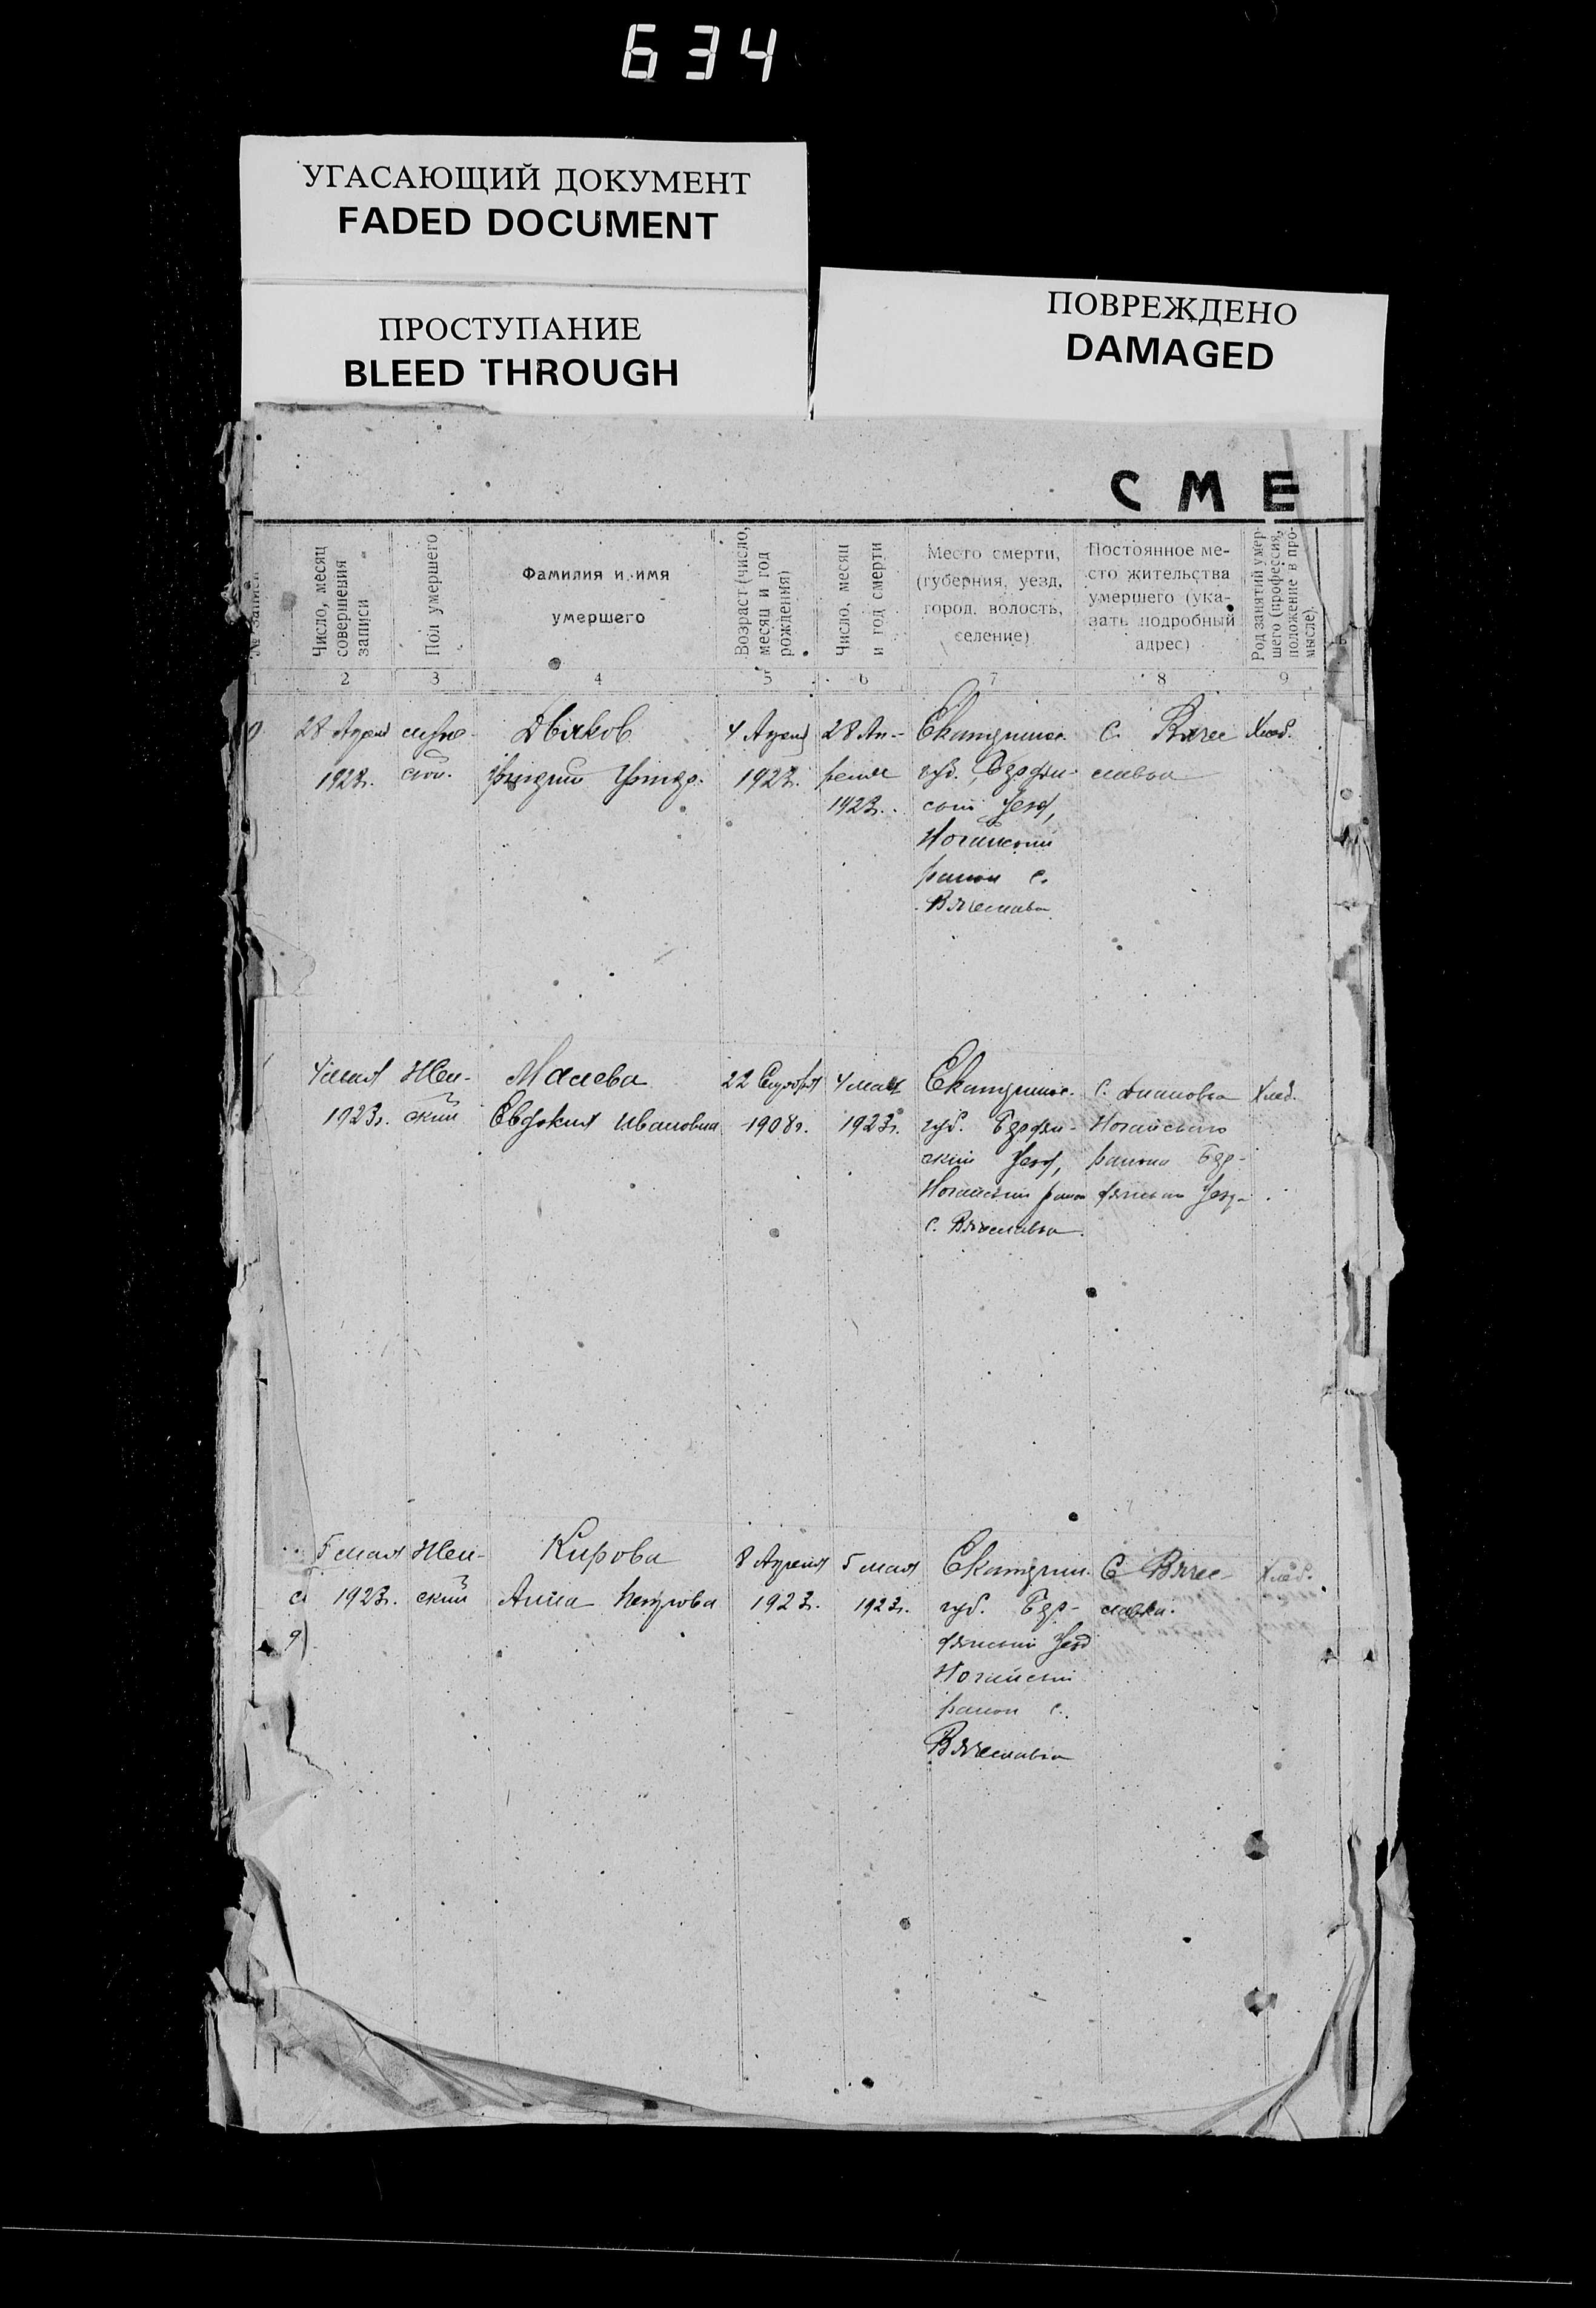 634
УГАСАЮЩИЙ ДОКУМЕНТ
FADED DOCUMENT
ПРОСТУПАНИЕ
BLEED THROUGH
ПОВРЕЖДЕНО
DAMAGED
СМЕ
№ записи
Число, месяц
совершения
записи
Пол умершего
Фамилия и имя
умершего
Возраст (число,
месяц и год
рождения)
Число, месяц
и год смерти
Место смерти,
(губерния, уезд,
город, волость,
селение)
Постоянное ме-
сто жительства
умершего (ука-
зать подробный
адрес)
Род занятий умер-
шего (профессия,
положение в про-
мысле).
1 2 3 4 5 6 7 8 9
28 Апреля
1923г.
Дьяков
4 Апреля
1923г.
28 Ап-
реля
1923г.
Екатеринос.
губ. Бердян-
ский Уезд,
Ногайский
район с.
Вячеславка
с. Вячес
славка
Хлеб.
4 мая
1923г.
Жен-
ский
Малева
Евдокия Ивановна
22
1908г.
4 мая
1923г.
Екатеринос.
губ. Бердян-
ский Уезд,
Ногайский район
с. Вячеславка
с.
Ногайского
района Бер-
дянского Уезда
Хлеб.
5 мая
1923г.
Жен-
ский
Кирова
Анна Петрова
8 Апреля
1923г.
5 мая
1923г.
Екатерин.
губ. Бер-
дянский Уезд
Ногайский
район с.
Вячеславка
С. Вячес-
лавка.
Хлеб.